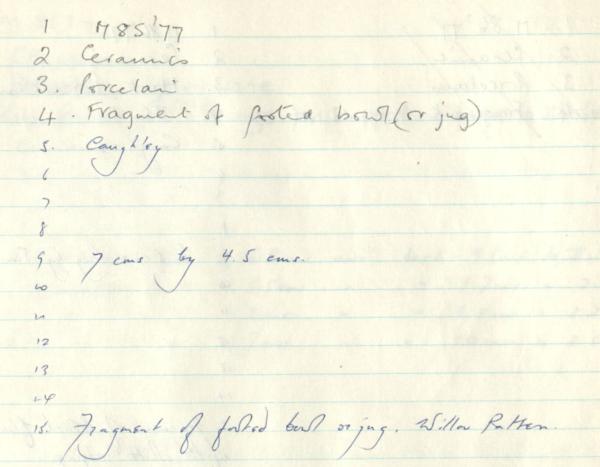 1 M85'77
2 Ceramics
3. Porcelain
4. Fragment of footed bowl (or jug)
5. Caughley
6
7
8
9 7 cms by 4.5 cms.
10
11
12
13
14
15. Fragment of footed bowl or jug. Willow Pattern.